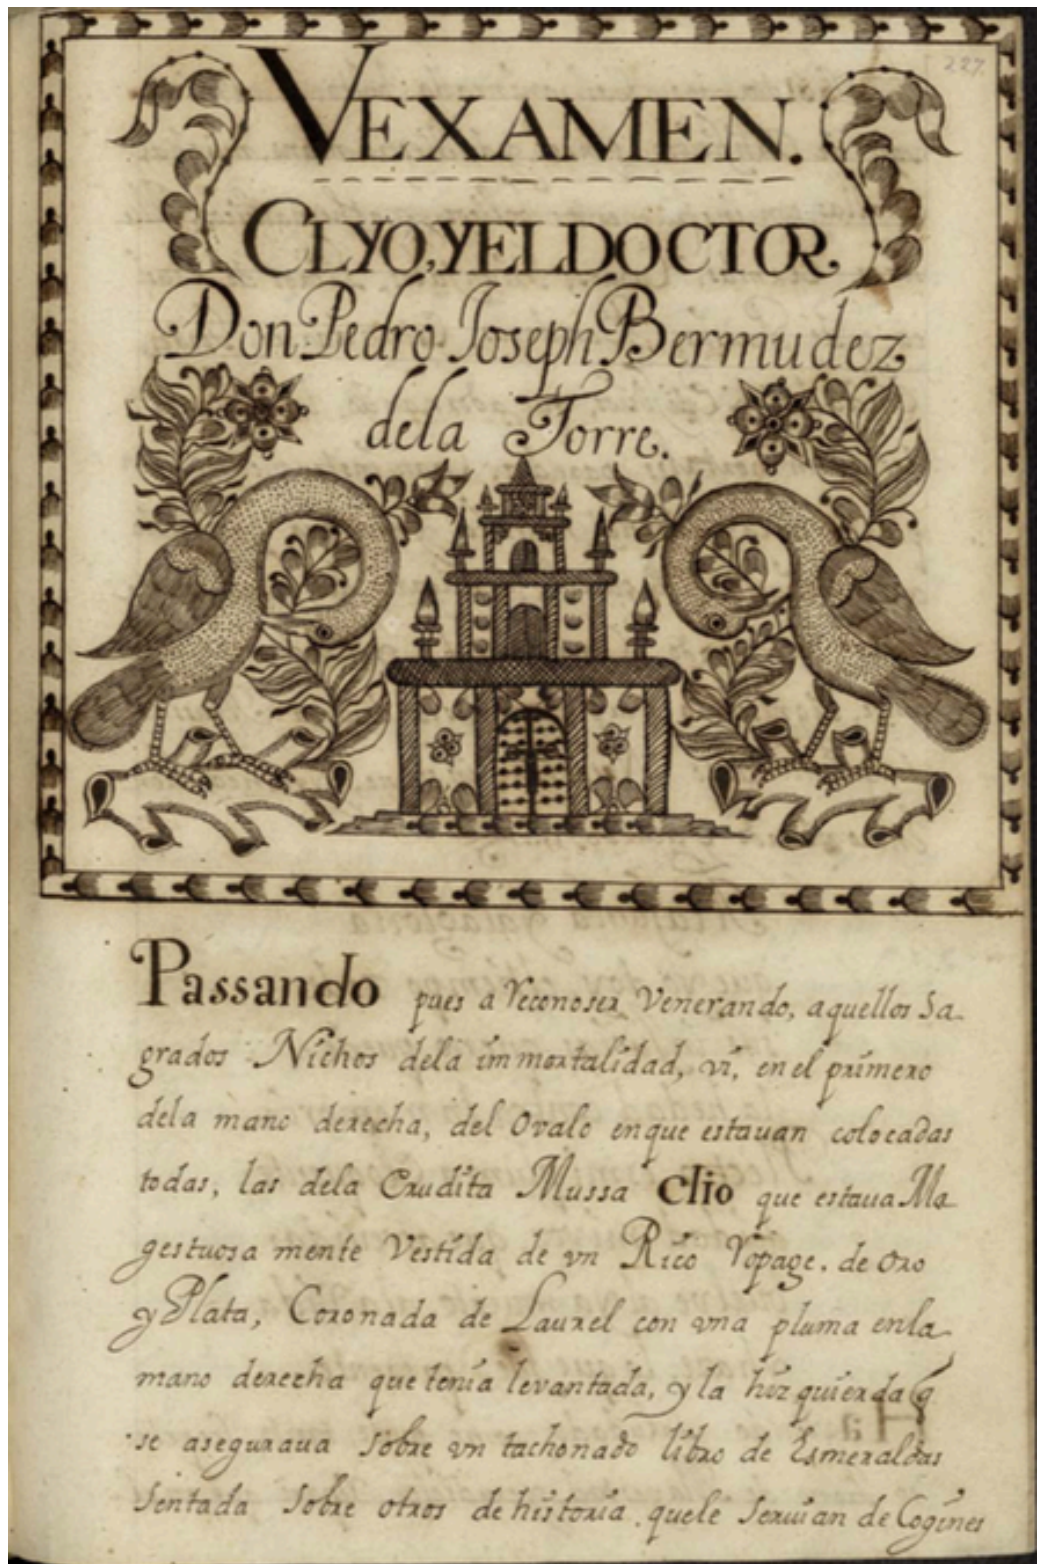 227.
VEXAMEN.
CLYO, Y EL DOCTOR
Don Pedro Joseph Bermudez
dela Torre.
Passando pues a reconoser Venerando, aquellos Sa-
grados Nichos dela immortalidad, vi, en el primero
dela mano derecha, del Ovalo enque estauan colocadas
todas, las dela Erudita Mussa Clio que estaua Ma-
gestuosa mente Vestida de vn Rico Ropage, de Oro
y Plata, Coronada de Laurel con vna pluma enla
mano derecha que tenia levantada, y la hizquierda q
se aseguraua sobre vn tachonado libro de Esmeraldas
sentada sobre otros de historia quele seruian de Cogines